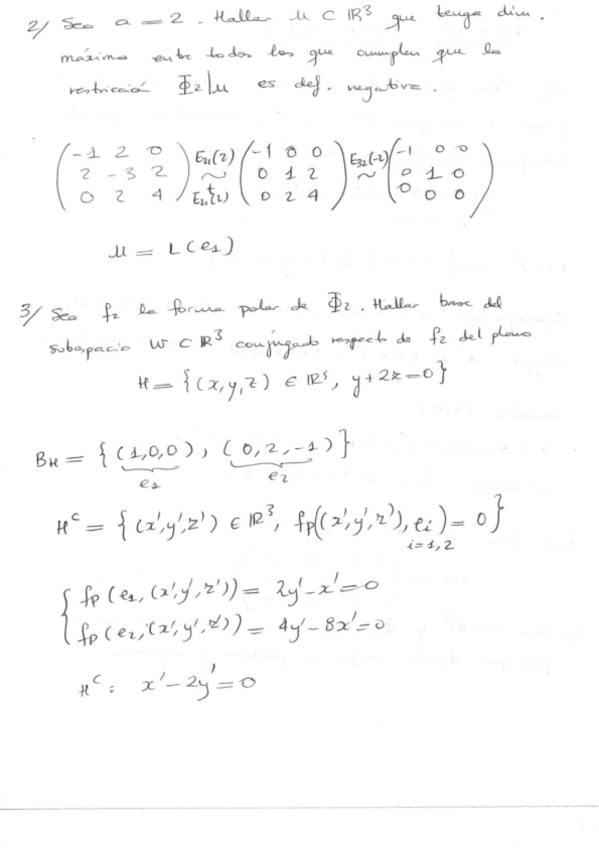 2/ Sea a = 2. Hallar U ⊂ ℝ³ que tenga dim.
máxima entre todos los que cumplen que la
restricción Φ₂|u es def. negativa.
(-1 2 0; 2 -3 2; 0 2 4) E₂₁(2) ~ E₂₁ᵗ(2) (-1 0 0; 0 1 2; 0 2 4) E₃₂(-2) ~ (-1 0 0; 0 1 0; 0 0 0)
U = L(e₁)
3/ Sea f₂ la forma polar de Φ₂. Hallar base del
subespacio W ⊂ ℝ³ conjugado respecto de f₂ del plano
H = {(x,y,z) ∈ ℝ³, y+2z=0}
B_H = {(1,0,0), (0,2,-1)}
e₁ e₂
Hᶜ = {(x',y',z') ∈ ℝ³, fp((x',y',z'), eᵢ) = 0}
i=1,2
{ fp(e₁,(x',y',z')) = 2y'-x'=0
fp(e₂,(x',y',z')) = 4y'-8x'=0
Hᶜ: x'-2y'=0